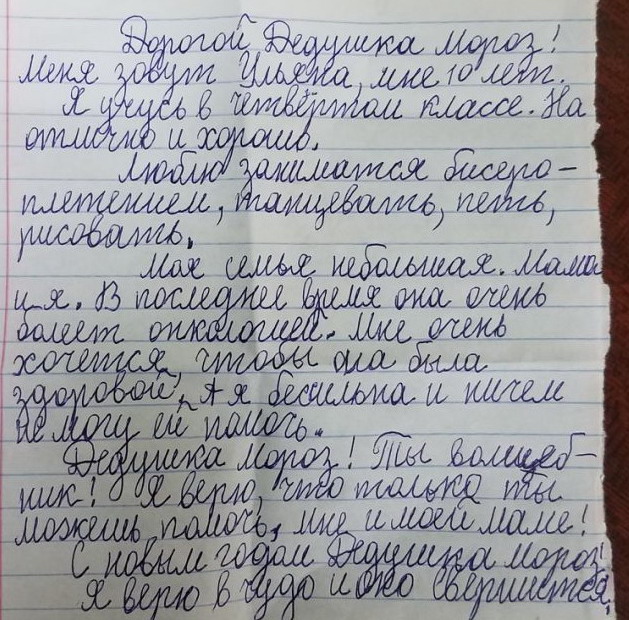 Дорогой Дедушка Мороз!
Меня зовут Ульяна, мне 10 лет.
Я учусь в четвёртом классе. На
отлично и хорошо.
Люблю заниматся бисеро-
плетением, танцевать, петь,
рисовать.
Моя семья небольшая. Мама
и я. В последнее время она очень
болеет онкологией. Мне очень
хочется, чтобы она была
здоровой. А я бессильна и ничем
не могу ей помочь.
Дедушка мороз! Ты волшеб-
ник! Я верю, что только ты
можешь помочь, мне и моей маме!
С новым годом Дедушка мороз!
Я верю в чудо и оно свершится.